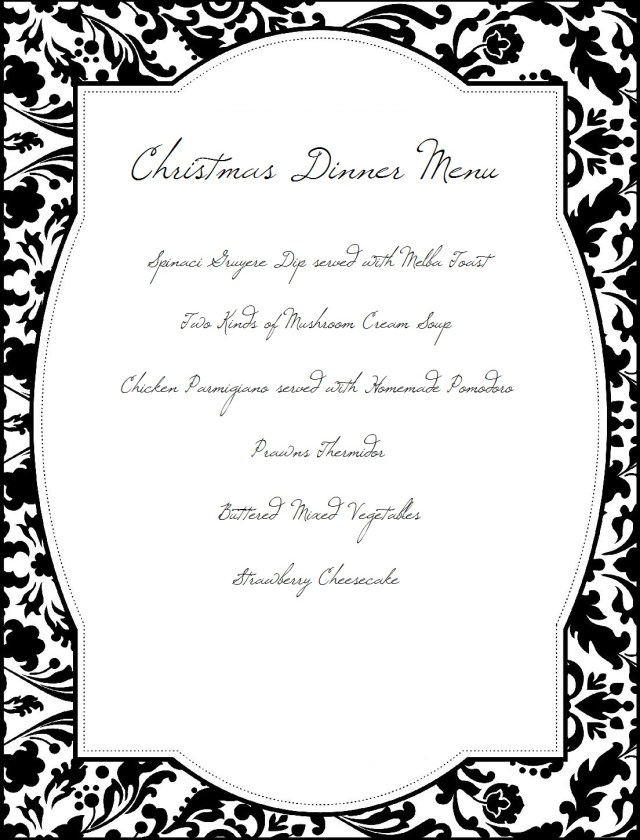 Christmas Dinner Menu
Spinaci Gruyere Dip served with Melba Toast
Two Kinds of Mushroom Cream Soup
Chicken Parmigiano served with Homemade Pomodoro
Prawns Thermidor
Buttered Mixed Vegetables
Strawberry Cheesecake